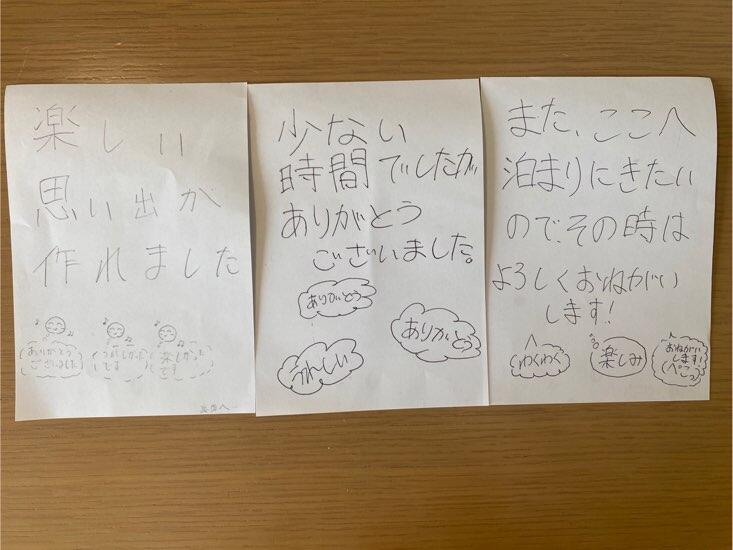 楽しい
思い出が
作れました
ありがとう
ございました
うれしかった
です
楽しかった
です
少ない
時間でしたが
ありがとう
ございました。
ありがとう
ありがとう
うれしい
また、ここへ
泊まりにきたい
ので、その時は
よろしくおねがい
します！
わくわく
楽しみ
おねがい
します！
(ペこっ)